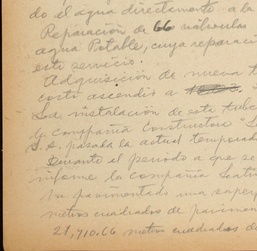 do el agua directamente a la
Reparación de 66 válvulas
agua Potable, cuya reparaci
este servicio.
Adquisición de nueva t
costo ascendió a
La instalación de esta tube
la Compañía Constructora "L
S.A. pasada la actual temporad
Durante el periodo a que se
informe la Compañía
ha pavimentado una super
metros cuadrados de pavimen
28,710.66 metros cuadrados de